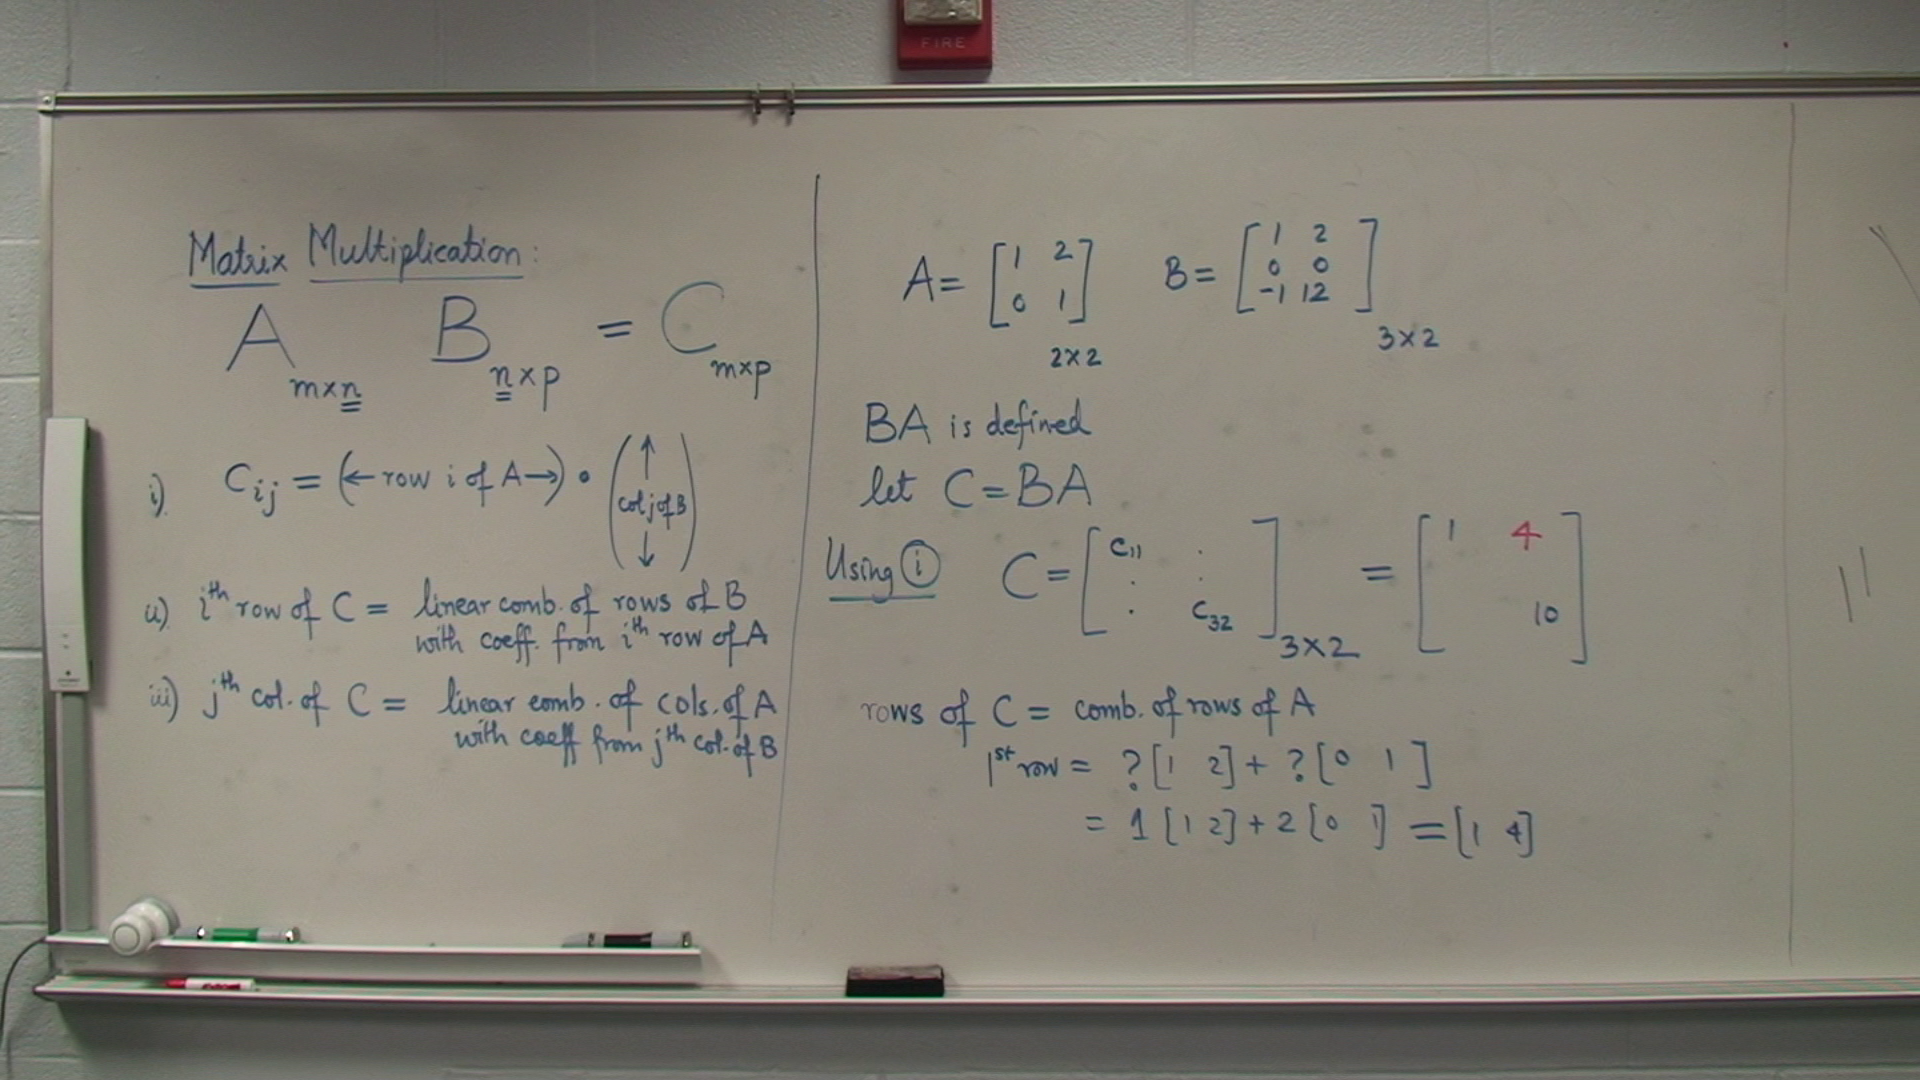 FIRE
Matrix Multiplication:
A m×n B n×p = C m×p
i) Cij = (←row i of A→) • (↑ col j of B ↓)
ii) i th row of C = linear comb. of rows of B
with coeff. from i th row of A
iii) j th col. of C = linear comb. of cols. of A
with coeff from j th col. of B
A = [1 2
0 1] 2×2
B = [1 2
0 0
-1 12] 3×2
BA is defined
let C = BA
Using (i) C = [C11 .
. .
. C32] 3×2 = [1 4
10]
rows of C = comb. of rows of A
1st row = ? [1 2] + ? [0 1]
= 1 [1 2] + 2 [0 1] = [1 4]